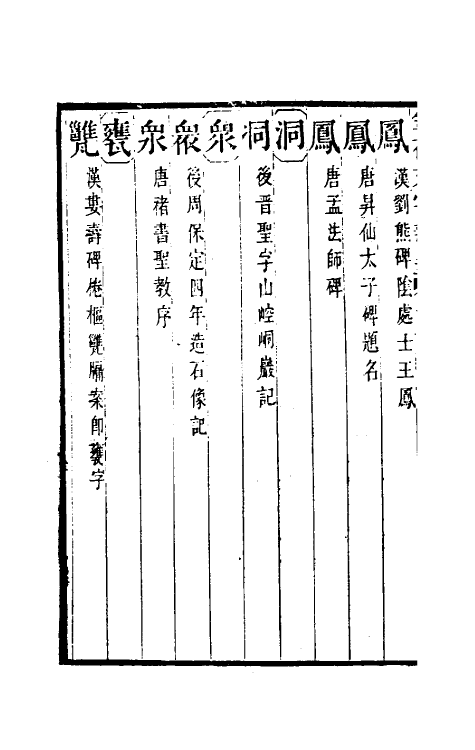 鳳 漢劉熊碑陰處士王鳳
鳳 唐昇仙太子碑題名
鳳 唐孟法師碑
洞
洞 後晉聖字山崆峒巖記
衆
衆 後周保定四年造石像記
衆 唐禇書聖教序
甕
甕 漢婁壽碑棬樞甕牖案即甕字